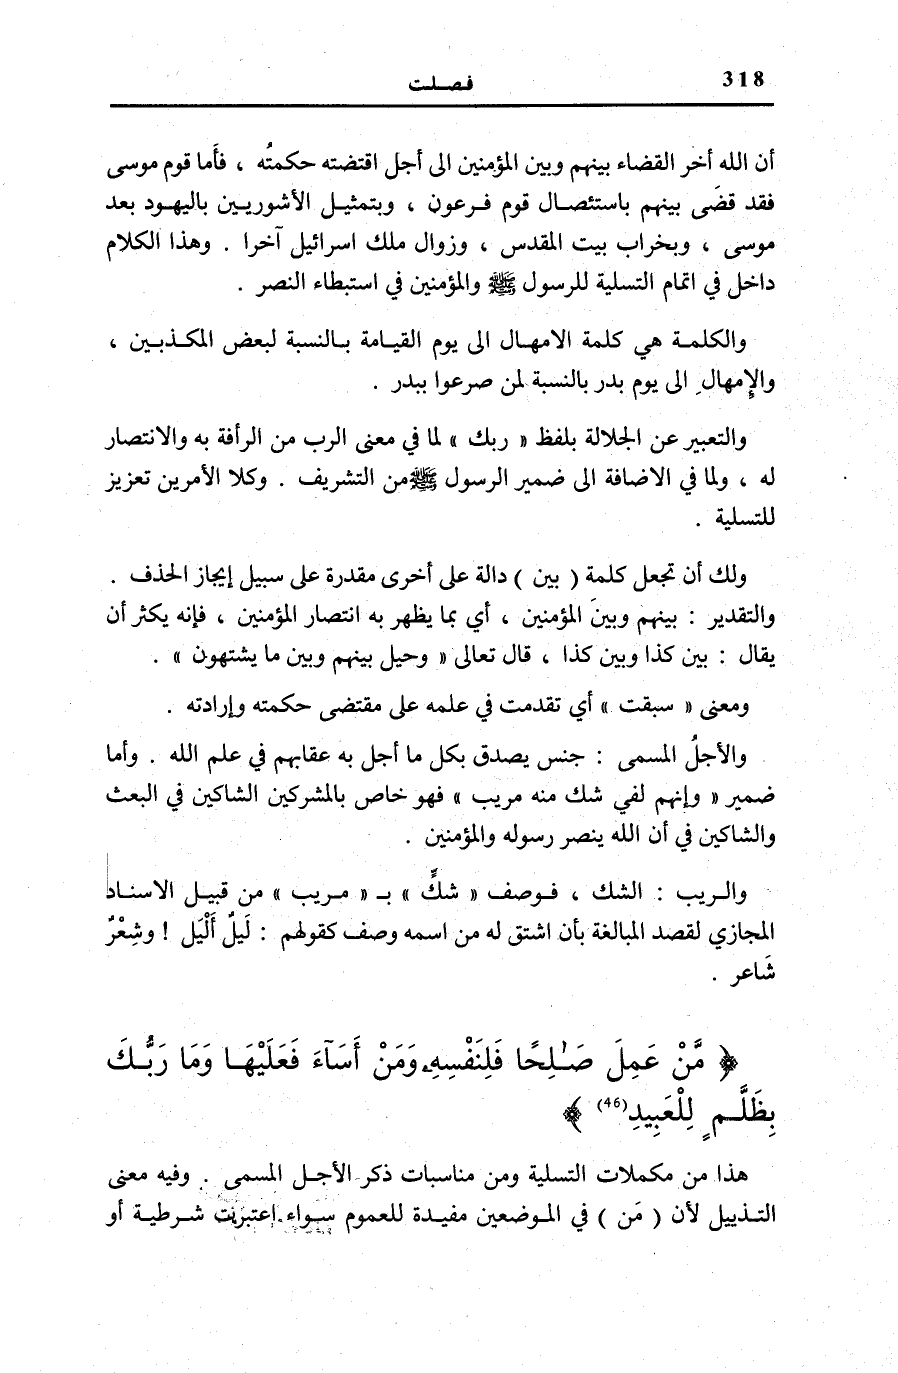 318
فصلت
أن الله أخر القضاء بينهم وبين المؤمنين الى أجل اقتضته حكمتُه ، فأَما قوم موسى
فقد قضَى بينهم باستئصال قوم فرعون ، وبتمثيل الأشوريين باليهود بعد
موسى ، وبخراب بيت المقدس ، وزوال ملك اسرائيل آخرا . وهذا الكلام
داخل في اتمام التسلية للرسول ﷺ والمؤمنين في استبطاء النصر .
والكلمة هي كلمة الامهال الى يوم القيامة بالنسبة لبعض المكذبين ،
والإِمهالِ الى يوم بدر بالنسبة لمن صرعوا ببدر .
والتعبير عن الجلالة بلفظ « ربك » لما في معنى الرب من الرأفة به والانتصار
له ، ولما في الاضافة الى ضمير الرسول ﷺ من التشريف . وكلا الأمرين تعزيز
للتسلية .
ولك أن تجعل كلمة ( بين ) دالة على أخرى مقدرة على سبيل إيجاز الحذف .
والتقدير : بينهم وبينَ المؤمنين ، أي بما يظهر به انتصار المؤمنين ، فإنه يكثر أن
يقال : بين كذا وبين كذا ، قال تعالى « وحيل بينهم وبين ما يشتهون » .
ومعنى « سبقت » أي تقدمت في علمه على مقتضى حكمته وإرادته .
والأجلُ المسمى : جنس يصدق بكل ما أجل به عقابهم في علم الله . وأما
ضمير « وإنهم لفي شك منه مريب » فهو خاص بالمشركين الشاكين في البعث
والشاكين في أن الله ينصر رسوله والمؤمنين .
والريب : الشك ، فوصف « شكٍّ » بـ « مريب » من قبيل الاسناد
المجازي لقصد المبالغة بأن اشتق له من اسمه وصف كقولهم : لَيلٌ أَلْيَل ! وشِعْرٌ
شَاعر .
﴿ مَّنْ عَمِلَ صَٰلِحًا فَلِنَفْسِهِۦ وَمَنْ أَسَآءَ فَعَلَيْهَا وَمَا رَبُّكَ
بِظَلَّٰمٍ لِّلْعَبِيدِ (46) ﴾
هذا من مكملات التسلية ومن مناسبات ذكر الأجل المسمى . وفيه معنى
التذييل لأن ( مَن ) في الموضعين مفيدة للعموم سواء اعتبرت شرطية أو